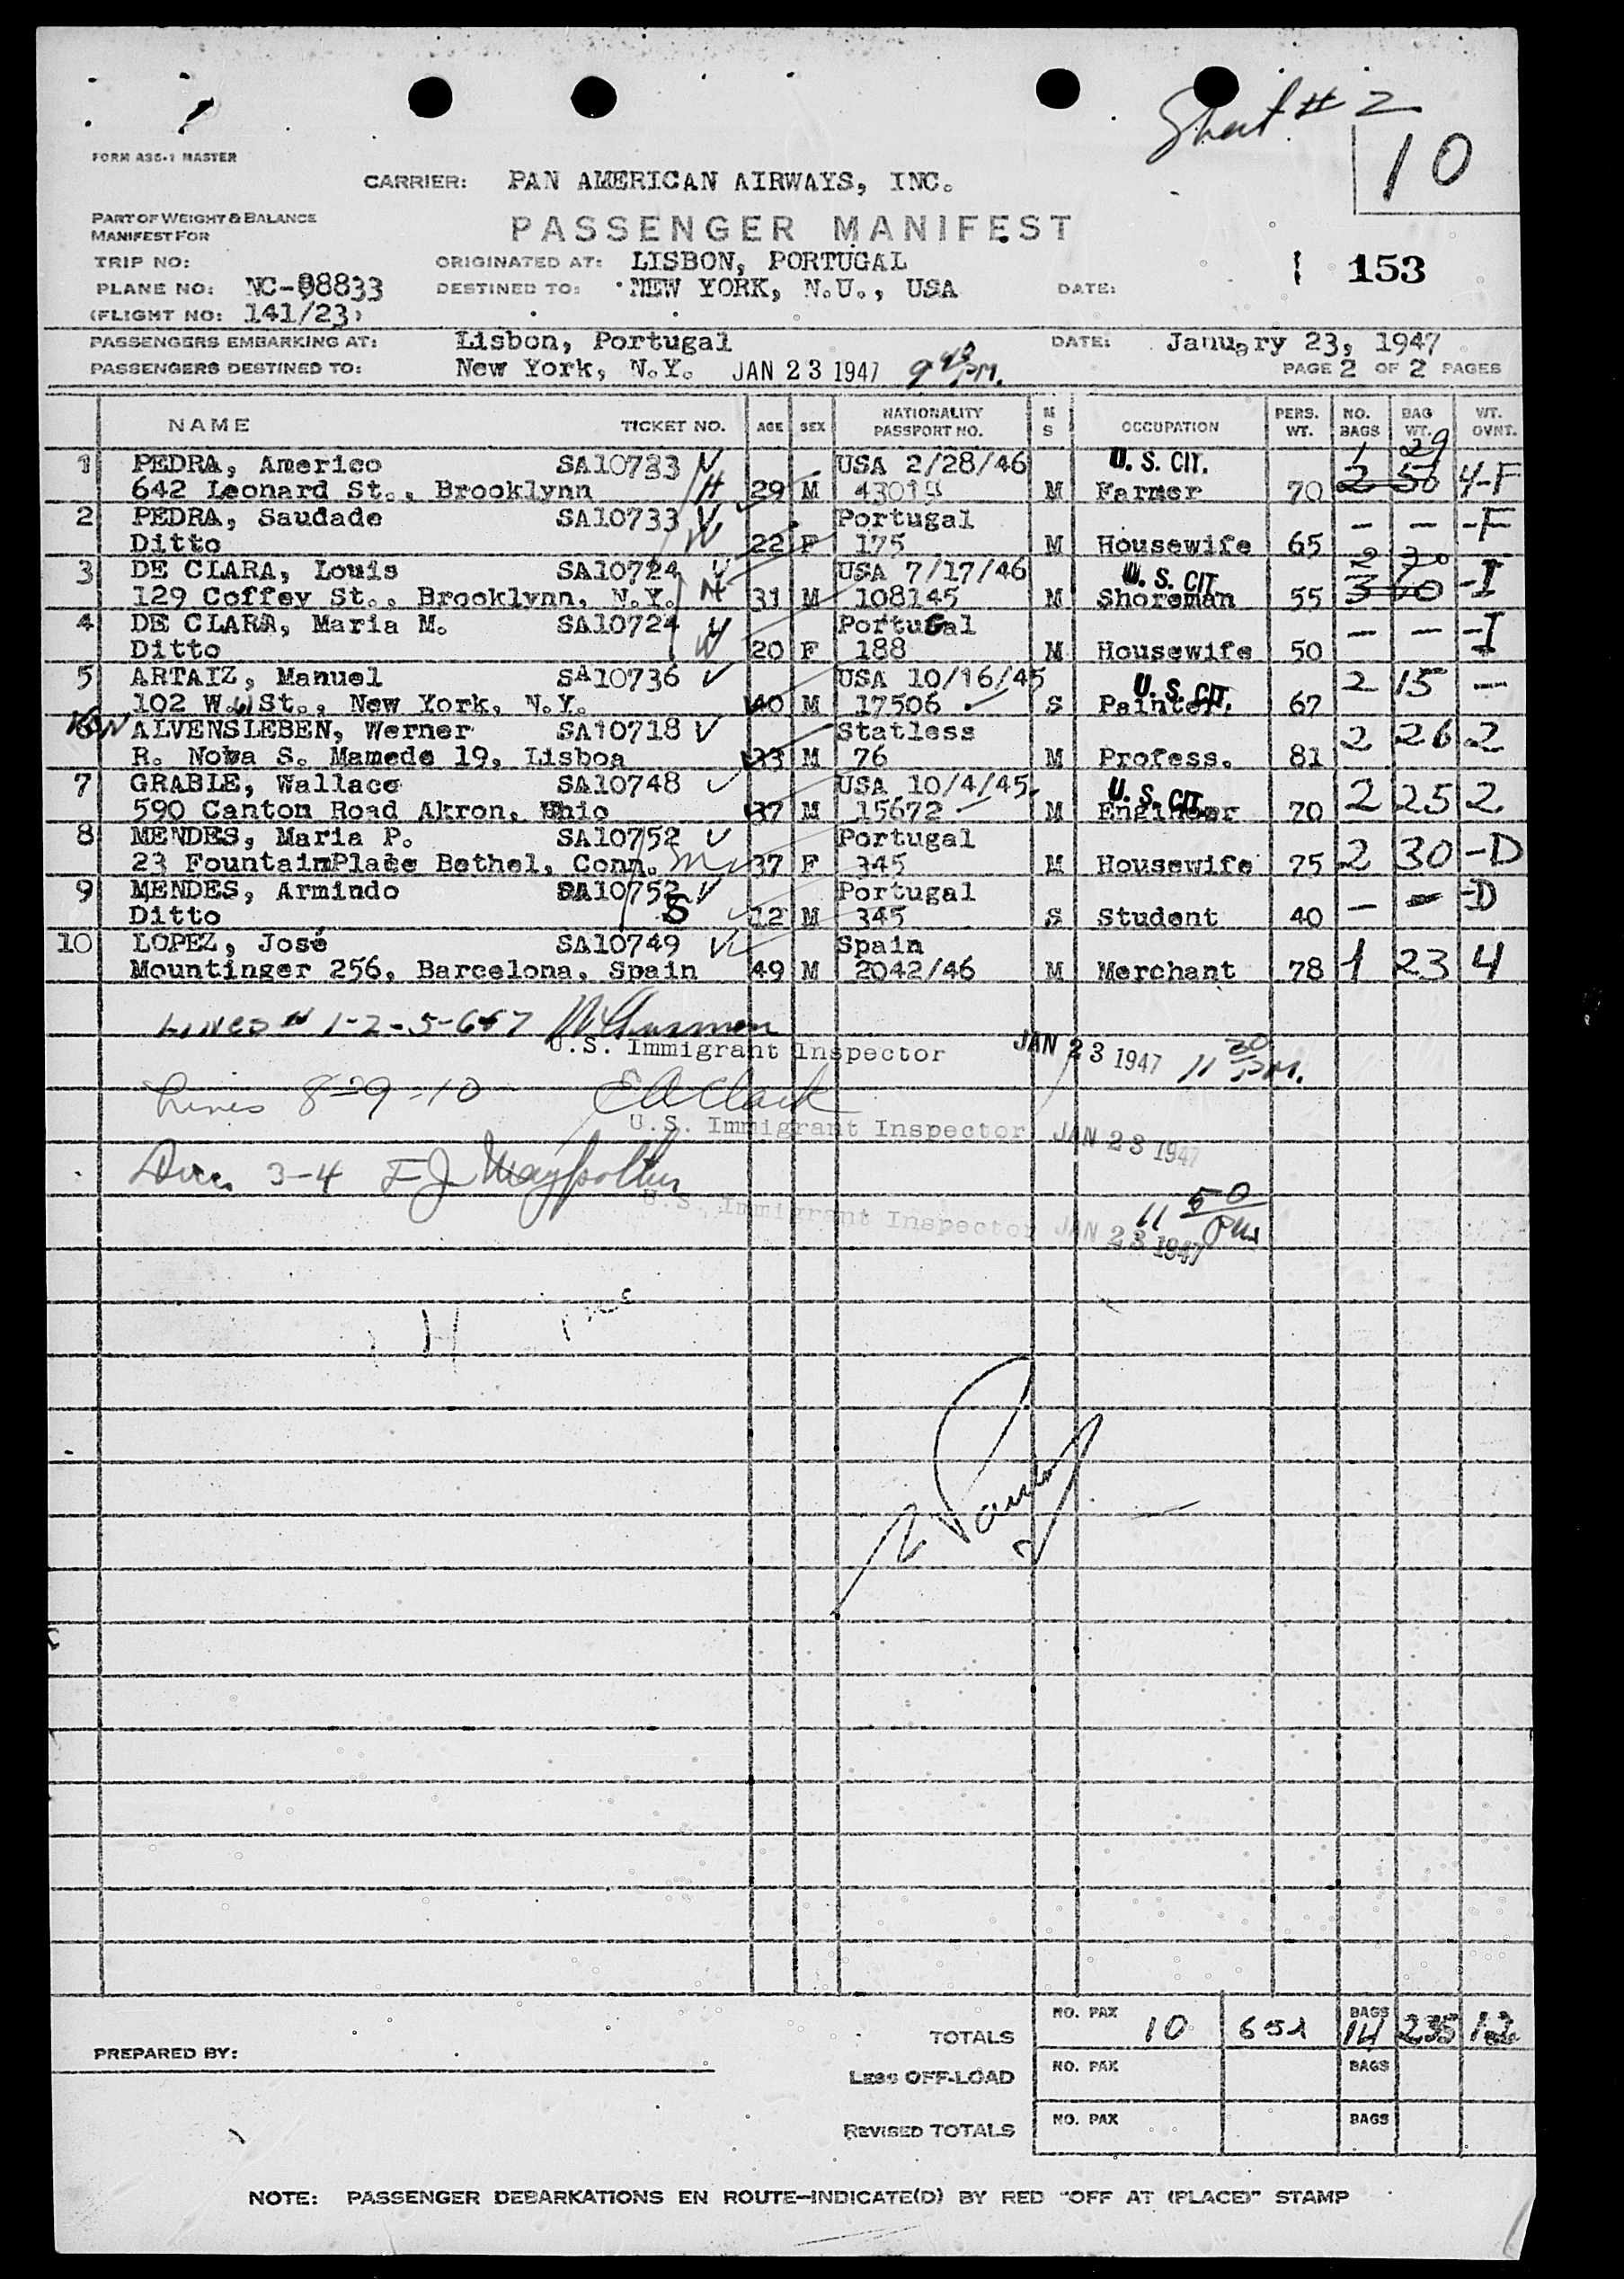 Sheet # 2
10
FORM ASE-1 MASTER
CARRIER: PAN AMERICAN AIRWAYS, INC.
PART OF WEIGHT & BALANCE
MANIFEST FOR
PASSENGER MANIFEST
TRIP NO: ORIGINATED AT: LISBON, PORTUGAL
153
PLANE NO: NC-88833 DESTINED TO: NEW YORK, N.U., USA DATE:
(FLIGHT NO: 141/23)
PASSENGERS EMBARKING AT: Lisbon, Portugal DATE: January 23, 1947
PASSENGERS DESTINED TO: New York, N.Y. JAN 23 1947 9 40 PM. PAGE 2 OF 2 PAGES
NAME TICKET NO. AGE SEX NATIONALITY PASSPORT NO. M S OCCUPATION PERS. WT. NO. BAGS BAG WT. WT. OVNT.
1 PEDRA, Americo SA10733 USA 2/28/46 U. S. CIT. 1 29
642 Leonard St., Brooklynn H 29 M 43019 M Farmer 70 2 50 4-F
2 PEDRA, Saudade SA10733 Portugal — — -F
Ditto W 22 F 175 M Housewife 65
3 DE CLARA, Louis SA10724 USA 7/17/46 U. S. CIT. 2 30
129 Coffey St., Brooklynn, N.Y. H 31 M 108145 M Shoreman 55 3 60 -I
4 DE CLARA, Maria M. SA10724 Portugal — — -I
Ditto W 20 F 188 M Housewife 50
5 ARTAIZ, Manuel SA10736 USA 10/16/45 U. S. CIT. 2 15 —
102 W. St., New York, N.Y. 40 M 17506 S Painter. 67
6 ALVENSLEBEN, Werner SA10718 Statless 2 26 2
R. Nova S. Mamede 19, Lisboa 33 M 76 M Profess. 81
7 GRABLE, Wallace SA10748 USA 10/4/45. U. S. CIT. 2 25 2
590 Canton Road Akron, Ohio 37 M 15672 M Engineer 70
8 MENDES, Maria P. SA10752 Portugal 2 30 -D
23 FountainPlace Bethel, Conn. M 37 F 345 M Housewife 75
9 MENDES, Armindo SA10752 Portugal — — -D
Ditto S 12 M 345 S Student 40
10 LOPEZ, José SA10749 Spain 1 23 4
Mountinger 256, Barcelona, Spain 49 M 2042/46 M Merchant 78
Lines # 1-2-5-6+7
U.S. Immigrant Inspector JAN 23 1947 11 30 PM.
Lines 8-9-10 E A Clark
U.S. Immigrant Inspector JAN 23 1947
3-4 F J
U.S. Immigrant Inspector JAN 23 1947 11 50 PM
TOTALS NO. PAX 10 651 BAGS 14 235 12
PREPARED BY:
LESS OFF-LOAD NO. PAX BAGS
REVISED TOTALS NO. PAX BAGS
NOTE: PASSENGER DEBARKATIONS EN ROUTE—INDICATE(D) BY RED "OFF AT (PLACE)" STAMP